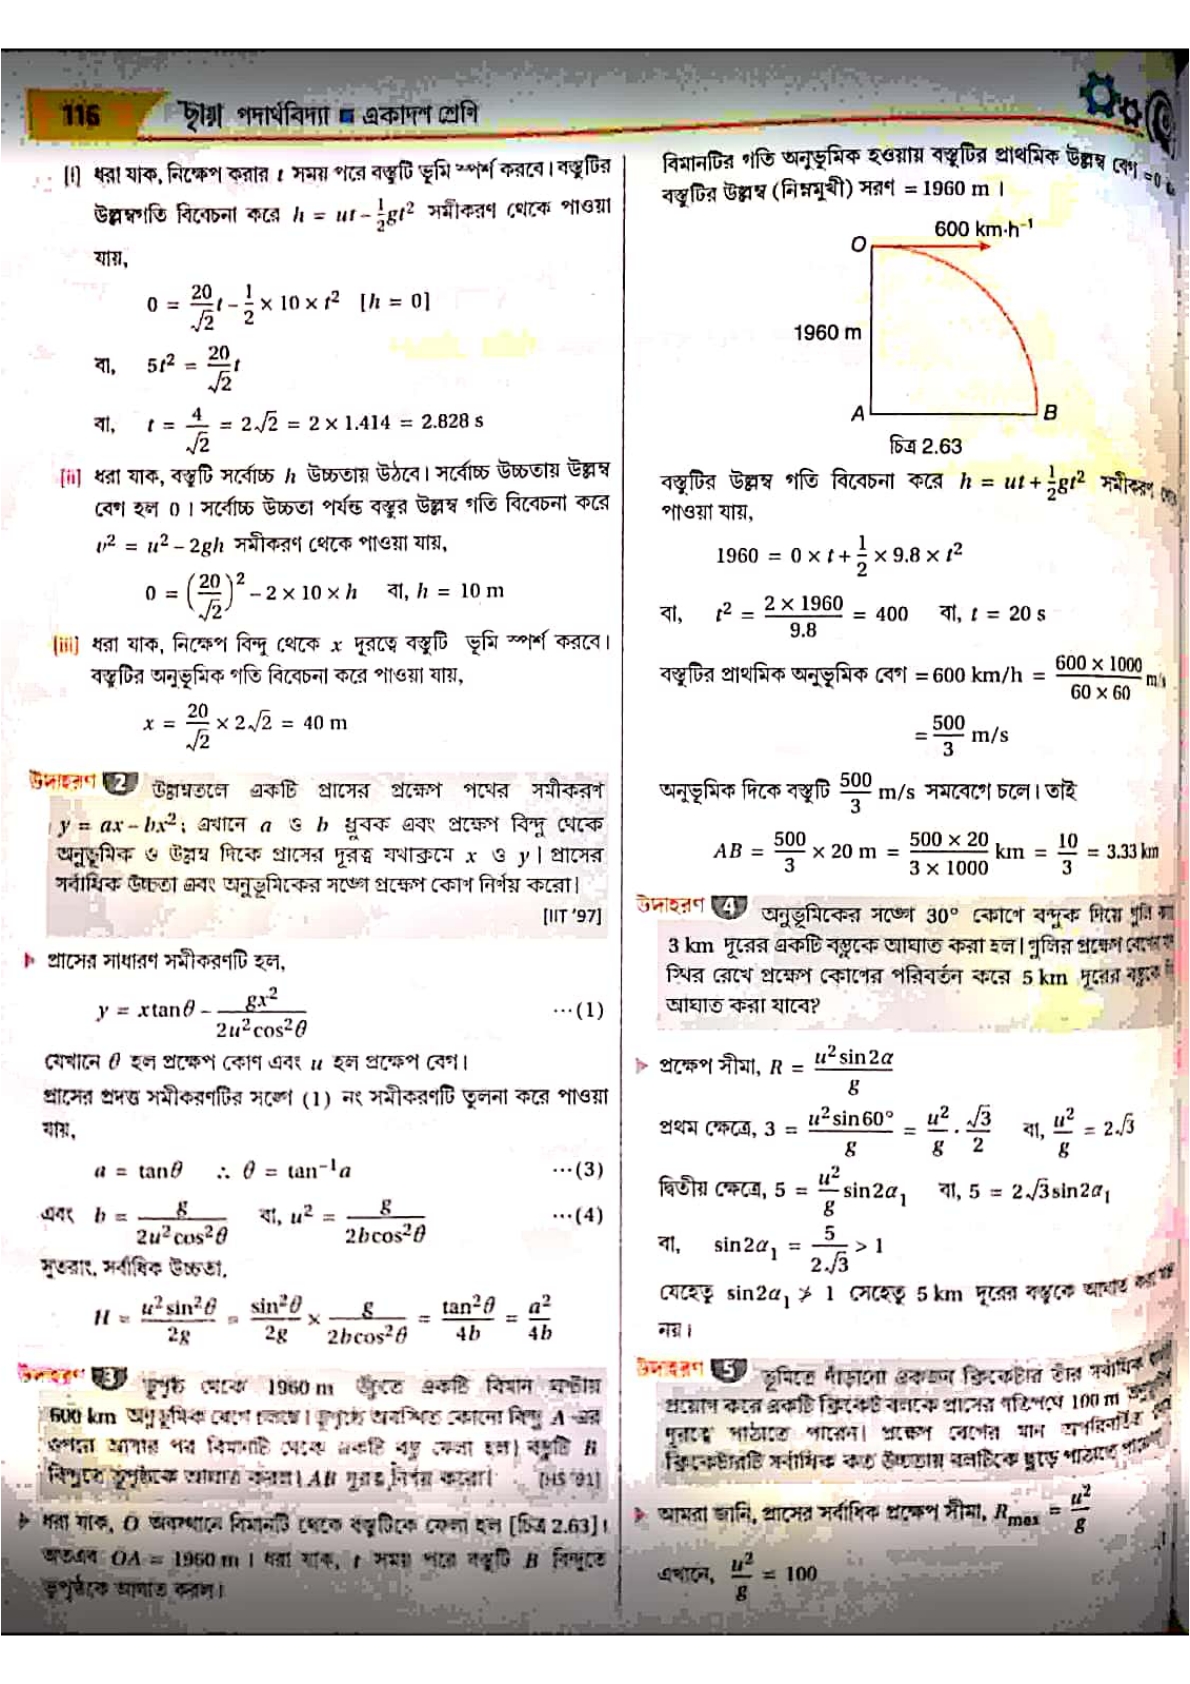 116 ছায়া পদার্থবিদ্যা ■ একাদশ শ্রেণি
[i] ধরা যাক, নিক্ষেপ করার t সময় পরে বস্তুটি ভূমি স্পর্শ করবে। বস্তুটির
উল্লম্বগতি বিবেচনা করে h = ut − 1/2 gt² সমীকরণ থেকে পাওয়া
যায়,
0 = 20/√2 t − 1/2 × 10 × t² [h = 0]
বা, 5t² = 20/√2 t
বা, t = 4/√2 = 2√2 = 2 × 1.414 = 2.828 s
[ii] ধরা যাক, বস্তুটি সর্বোচ্চ h উচ্চতায় উঠবে। সর্বোচ্চ উচ্চতায় উল্লম্ব
বেগ হল 0। সর্বোচ্চ উচ্চতা পর্যন্ত বস্তুর উল্লম্ব গতি বিবেচনা করে
v² = u² − 2gh সমীকরণ থেকে পাওয়া যায়,
0 = (20/√2)² − 2 × 10 × h বা, h = 10 m
[iii] ধরা যাক, নিক্ষেপ বিন্দু থেকে x দূরত্বে বস্তুটি ভূমি স্পর্শ করবে।
বস্তুটির অনুভূমিক গতি বিবেচনা করে পাওয়া যায়,
x = 20/√2 × 2√2 = 40 m
উদাহরণ 2 উল্লম্বতলে একটি প্রাসের প্রক্ষেপ পথের সমীকরণ
y = ax − bx²; এখানে a ও b ধ্রুবক এবং প্রক্ষেপ বিন্দু থেকে
অনুভূমিক ও উল্লম্ব দিকে প্রাসের দূরত্ব যথাক্রমে x ও y। প্রাসের
সর্বাধিক উচ্চতা এবং অনুভূমিকের সঙ্গে প্রক্ষেপ কোণ নির্ণয় করো।
[IIT '97]
প্রাসের সাধারণ সমীকরণটি হল,
y = xtanθ − gx²/2u²cos²θ ···(1)
যেখানে θ হল প্রক্ষেপ কোণ এবং u হল প্রক্ষেপ বেগ।
প্রাসের প্রদত্ত সমীকরণটির সঙ্গে (1) নং সমীকরণটি তুলনা করে পাওয়া
যায়,
a = tanθ ∴ θ = tan⁻¹a ···(3)
এবং b = g/2u²cos²θ বা, u² = g/2bcos²θ ···(4)
সুতরাং, সর্বাধিক উচ্চতা,
H = u²sin²θ/2g = sin²θ/2g × g/2bcos²θ = tan²θ/4b = a²/4b
উদাহরণ 3 ভূপৃষ্ঠ থেকে 1960 m উঁচুতে একটি বিমান ঘণ্টায়
600 km অনুভূমিক বেগে চলছে। ভূপৃষ্ঠে অবস্থিত কোনো বিন্দু A -এর
ওপরে আসার পর বিমানটি থেকে একটি বস্তু ফেলা হল। বস্তুটি B
বিন্দুতে ভূপৃষ্ঠকে আঘাত করল। AB দূরত্ব নির্ণয় করো। [HS '91]
ধরা যাক, O অবস্থানে বিমানটি থেকে বস্তুটিকে ফেলা হল [চিত্র 2.63]।
অতএব OA = 1960 m। ধরা যাক, t সময় পরে বস্তুটি B বিন্দুতে
ভূপৃষ্ঠকে আঘাত করল।
বিমানটির গতি অনুভূমিক হওয়ায় বস্তুটির প্রাথমিক উল্লম্ব বেগ = 0
বস্তুটির উল্লম্ব (নিম্নমুখী) সরণ = 1960 m।
600 km·h⁻¹
O
1960 m
A B
চিত্র 2.63
বস্তুটির উল্লম্ব গতি বিবেচনা করে h = ut + 1/2 gt² সমীকরণ
পাওয়া যায়,
1960 = 0 × t + 1/2 × 9.8 × t²
বা, t² = 2 × 1960/9.8 = 400 বা, t = 20 s
বস্তুটির প্রাথমিক অনুভূমিক বেগ = 600 km/h = 600 × 1000/60 × 60 m/s
= 500/3 m/s
অনুভূমিক দিকে বস্তুটি 500/3 m/s সমবেগে চলে। তাই
AB = 500/3 × 20 m = 500 × 20/3 × 1000 km = 10/3 = 3.33 km
উদাহরণ 4 অনুভূমিকের সঙ্গে 30° কোণে বন্দুক দিয়ে গুলি
3 km দূরের একটি বস্তুকে আঘাত করা হল। গুলির প্রক্ষেপ বেগের
স্থির রেখে প্রক্ষেপ কোণের পরিবর্তন করে 5 km দূরের বস্তুকে
আঘাত করা যাবে?
প্রক্ষেপ সীমা, R = u²sin2α/g
প্রথম ক্ষেত্রে, 3 = u²sin60°/g = u²/g · √3/2 বা, u²/g = 2√3
দ্বিতীয় ক্ষেত্রে, 5 = u²/g sin2α₁ বা, 5 = 2√3sin2α₁
বা, sin2α₁ = 5/2√3 > 1
যেহেতু sin2α₁ ≯ 1 সেহেতু 5 km দূরের বস্তুকে আঘাত করা
নয়।
উদাহরণ 5 ভূমিতে দাঁড়ানো একজন ক্রিকেটার তাঁর সর্বাধিক
প্রয়োগ করে একটি ক্রিকেট বলকে প্রাসের গতিপথে 100 m
দূরত্বে পাঠাতে পারেন। প্রক্ষেপ বেগের মান অপরিবর্তিত
ক্রিকেটারটি সর্বাধিক কত উচ্চতায় বলটিকে ছুড়ে পাঠাতে
আমরা জানি, প্রাসের সর্বাধিক প্রক্ষেপ সীমা, Rmax = u²/g
এখানে, u²/g = 100